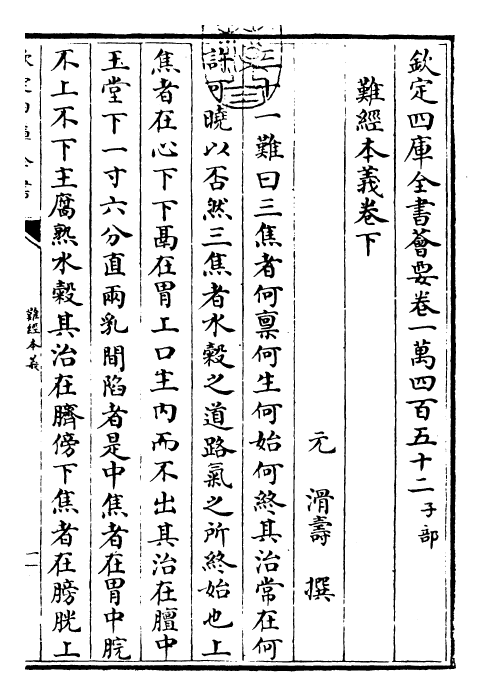 欽定四庫全書薈要卷一萬四百五十二子部
難經本義卷下
元 滑壽 撰
三十一難曰三焦者何禀何生何始何終其治常在何
許可曉以否然三焦者水穀之道路氣之所終始也上
焦者在心下下鬲在胃上口主内而不出其治在膻中
玉堂下一寸六分直兩乳間陷者是中焦者在胃中脘
不上不下主腐熟水穀其治在臍傍下焦者在膀胱上
難經本義